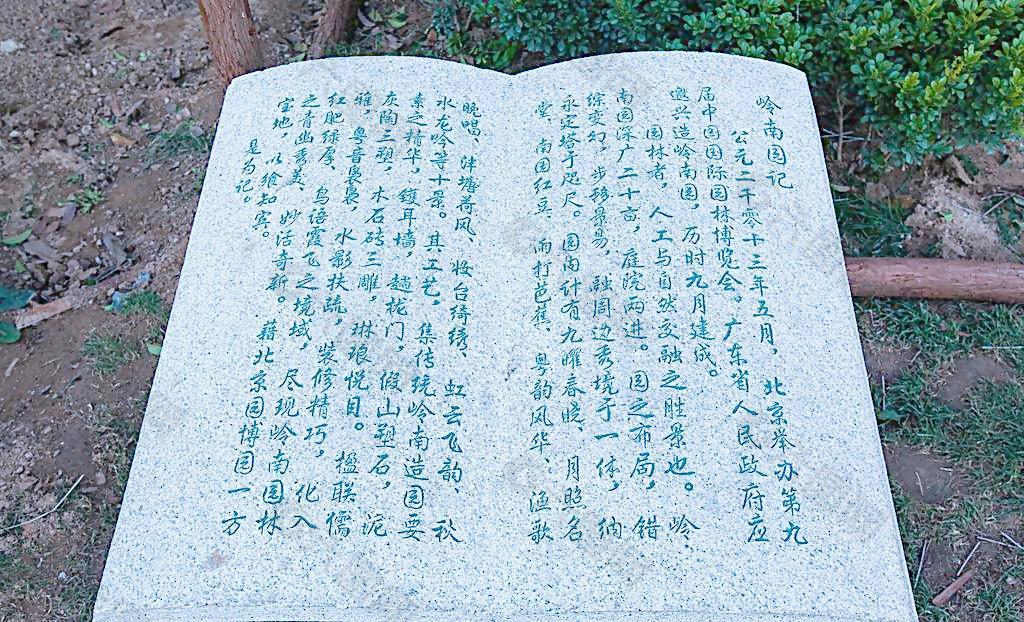 岭南园记
公元二千零十三年五月，北京举办第九
届中国国际园林博览会。广东省人民政府应
邀兴造岭南园，历时九月建成。
园林者，人工与自然交融之胜景也。岭
南园深广二十亩，庭院两进。园之布局，错
综变幻，步移景易，融周边秀境于一体，纳
永定塔于咫尺。园内计有九曜春晓、月照名
堂、南国红豆、雨打芭蕉、粤韵风华、渔歌
晚唱、泮塘荷风、妆台绮绣、虹云飞韵、秋
水龙吟等十景。其工艺，集传统岭南造园要
素之精华，镬耳墙，趟栊门，假山塑石，泥
灰陶三塑，木石砖三雕，琳琅悦目。楹联儒
雅，粤音袅袅，水影扶疏，装修精巧，化入
红肥绿厚、鸟语霞飞之境域，尽现岭南园林
之青幽秀美、妙活奇新。藉北京园博园一方
宝地，以飨知宾。
是为记。